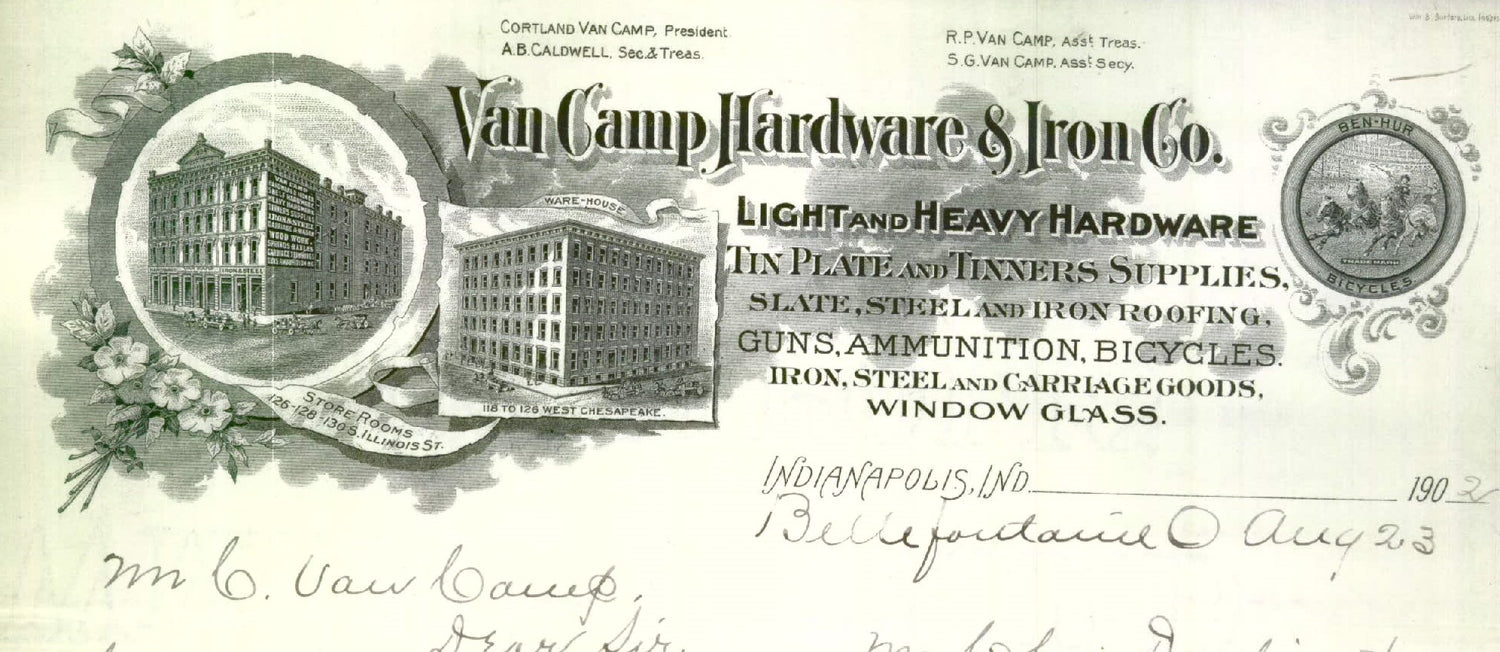 CORTLAND VAN CAMP, President.
A.B. CALDWELL, Sec. & Treas.
R.P. VAN CAMP, Asst Treas.
S.G. VAN CAMP, Asst Secy.
Van Camp Hardware & Iron Co.
LIGHT AND HEAVY HARDWARE
TIN PLATE AND TINNERS SUPPLIES,
SLATE, STEEL AND IRON ROOFING,
GUNS, AMMUNITION, BICYCLES.
IRON, STEEL AND CARRIAGE GOODS,
WINDOW GLASS.
BEN-HUR
TRADE MARK
BICYCLES.
WARE-HOUSE
118 TO 126 WEST CHESAPEAKE.
STORE ROOMS
126-128-130 S. ILLINOIS ST.
INDIANAPOLIS, IND. 1902
Bellefontaine O Aug 23
Mr C. Van Camp.
Dear Sir.